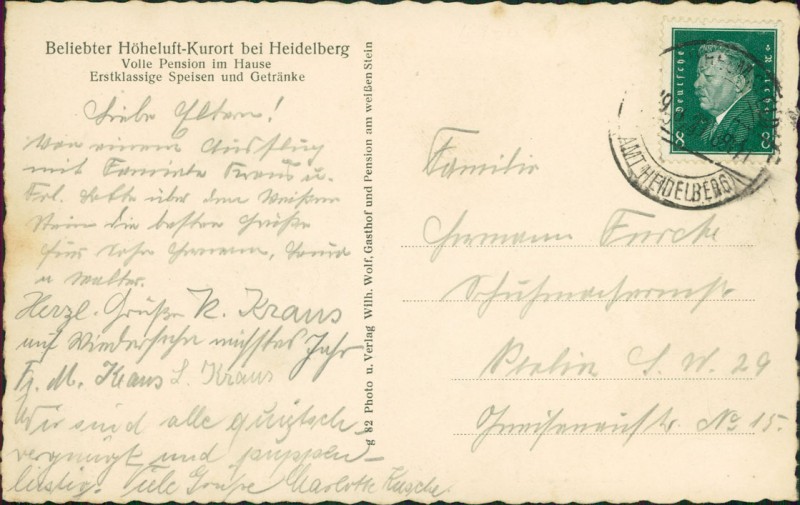 Beliebter Höheluft-Kurort bei Heidelberg
Volle Pension im Hause
Erstklassige Speisen und Getränke
Liebe Eltern!
Von einem Ausflug
mit Familie Kraus u.
Frl. Lotte über den Weißen
Stein die besten Grüße
für Hermann,
u Walter.
Herzl. Grüße K. Kraus
auf Wiedersehn nächstes Jahr
Fr. M. Kraus L. Kraus
Wir sind alle quitsch-
vergnügt und puppen-
lustig. Viele Grüße Charlotte Kusche.
g 82 Photo u. Verlag Wilh. Wolf, Gasthof und Pension am weißen Stein
Deutsches Reich
8 8
(AMT HEIDELBERG)
Familie
Hermann
Schuhmachermstr
Berlin S. W. 29
No 15.